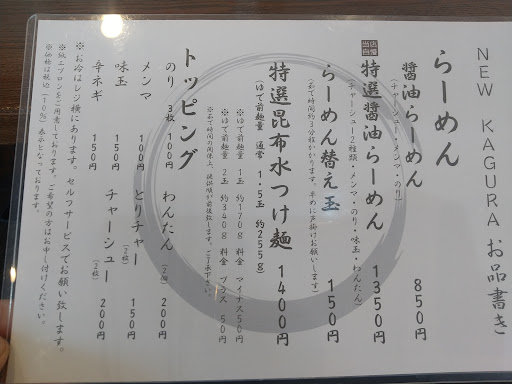 NEW KAGURA お品書き
らーめん
醤油らーめん 850円
(チャーシュー・メンマ・のり)
当店自慢
特選醤油らーめん 1350円
(チャーシュー2種類・メンマ・のり・味玉・わんたん)
らーめん替え玉 150円
(茹で時間約3分程かかります。早めに声掛けお願いします)
特選昆布水つけ麺 1400円
(ゆで前麺量 通常 1.5玉 約255g)
※ゆで前麺量 1玉 約170g 料金 マイナス50円
※ゆで前麺量 2玉 約340g 料金 プラス 50円
※茹で時間の関係上、提供順が前後致します。ご了承下さい。
トッピング
のり 3枚 100円 わんたん (2個) 200円
メンマ 100円 とりチャー (2枚) 150円
味玉 150円 チャーシュー (2枚) 200円
辛ネギ 150円
※お冷はレジ横にあります。セルフサービスでお願い致します。
※紙エプロンをご用意しております。ご希望の方はお申し付けください。
※価格は税込(10%)表示となっております。